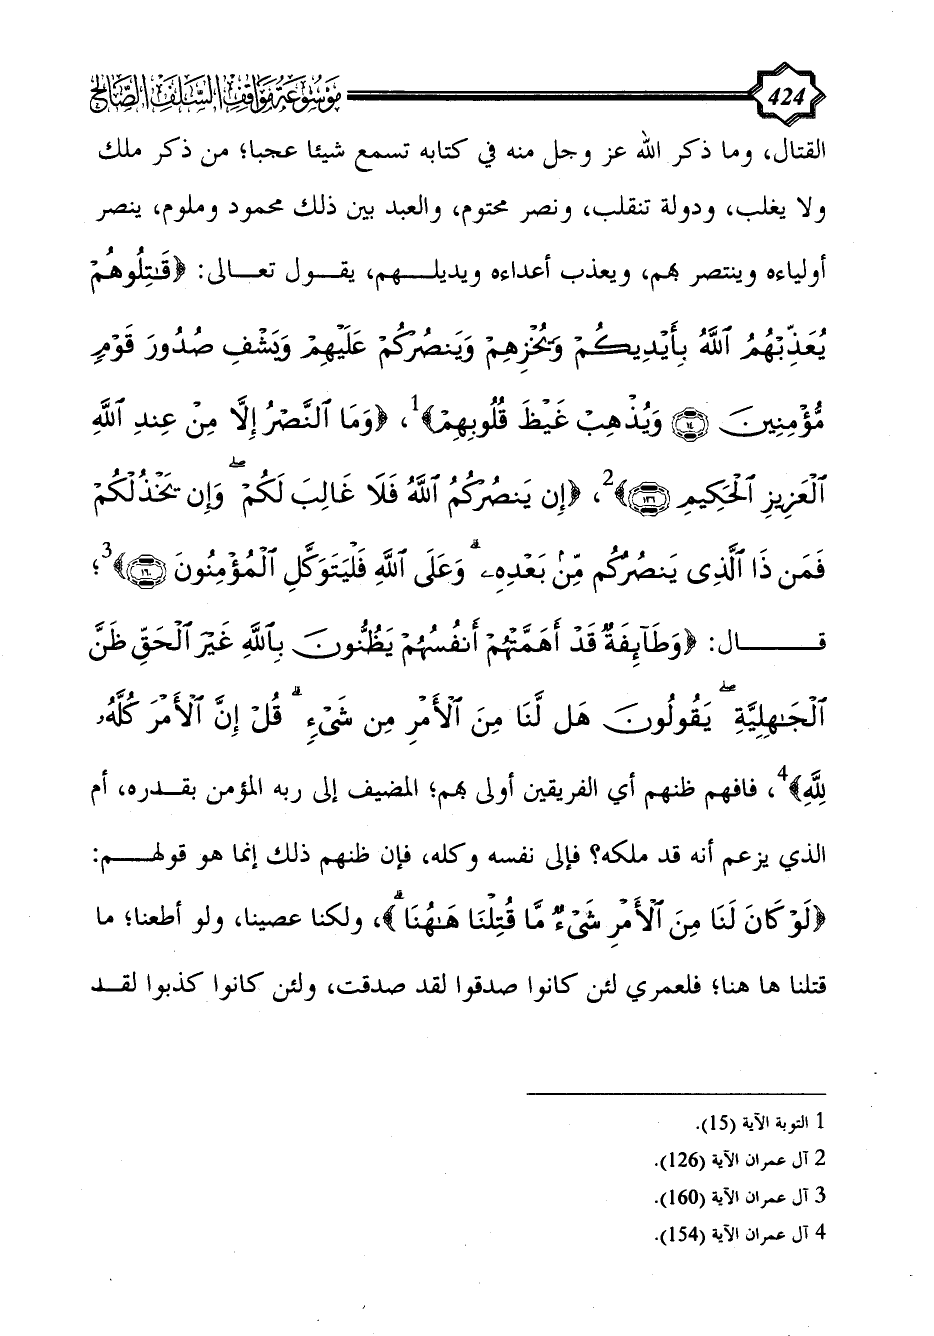 موسوعة مواقف السلف الصالح 424
القتال، وما ذكر الله عز وجل منه في كتابه تسمع شيئا عجبا؛ من ذكر ملك
ولا يغلب، ودولة تنقلب، ونصر محتوم، والعبد بين ذلك محمود وملوم، ينصر
أولياءه وينتصر بهم، ويعذب أعداءه ويديلهم، يقول تعالى: ﴿قَٰتِلُوهُمْ
يُعَذِّبْهُمُ ٱللَّهُ بِأَيْدِيكُمْ وَيُخْزِهِمْ وَيَنصُرْكُمْ عَلَيْهِمْ وَيَشْفِ صُدُورَ قَوْمٍ
مُّؤْمِنِينَ ١٤ وَيُذْهِبْ غَيْظَ قُلُوبِهِمْ﴾1، ﴿وَمَا ٱلنَّصْرُ إِلَّا مِنْ عِندِ ٱللَّهِ
ٱلْعَزِيزِ ٱلْحَكِيمِ ١٢٦﴾2، ﴿إِن يَنصُرْكُمُ ٱللَّهُ فَلَا غَالِبَ لَكُمْ ۖ وَإِن يَخْذُلْكُمْ
فَمَن ذَا ٱلَّذِى يَنصُرُكُم مِّنۢ بَعْدِهِۦ ۗ وَعَلَى ٱللَّهِ فَلْيَتَوَكَّلِ ٱلْمُؤْمِنُونَ ١٦٠﴾3؛
قال: ﴿وَطَآئِفَةٌ قَدْ أَهَمَّتْهُمْ أَنفُسُهُمْ يَظُنُّونَ بِٱللَّهِ غَيْرَ ٱلْحَقِّ ظَنَّ
ٱلْجَٰهِلِيَّةِ ۖ يَقُولُونَ هَل لَّنَا مِنَ ٱلْأَمْرِ مِن شَىْءٍ ۗ قُلْ إِنَّ ٱلْأَمْرَ كُلَّهُۥ
لِلَّهِ﴾4، فافهم ظنهم أي الفريقين أولى بهم؛ المضيف إلى ربه المؤمن بقدره، أم
الذي يزعم أنه قد ملكه؟ فإلى نفسه وكله، فإن ظنهم ذلك إنما هو قولهم:
﴿لَوْ كَانَ لَنَا مِنَ ٱلْأَمْرِ شَىْءٌ مَّا قُتِلْنَا هَٰهُنَا ۗ﴾، ولكنا عصينا، ولو أطعنا؛ ما
قتلنا ها هنا؛ فلعمري لئن كانوا صدقوا لقد صدقت، ولئن كانوا كذبوا لقد
1 التوبة الآية (15).
2 آل عمران الآية (126).
3 آل عمران الآية (160).
4 آل عمران الآية (154).